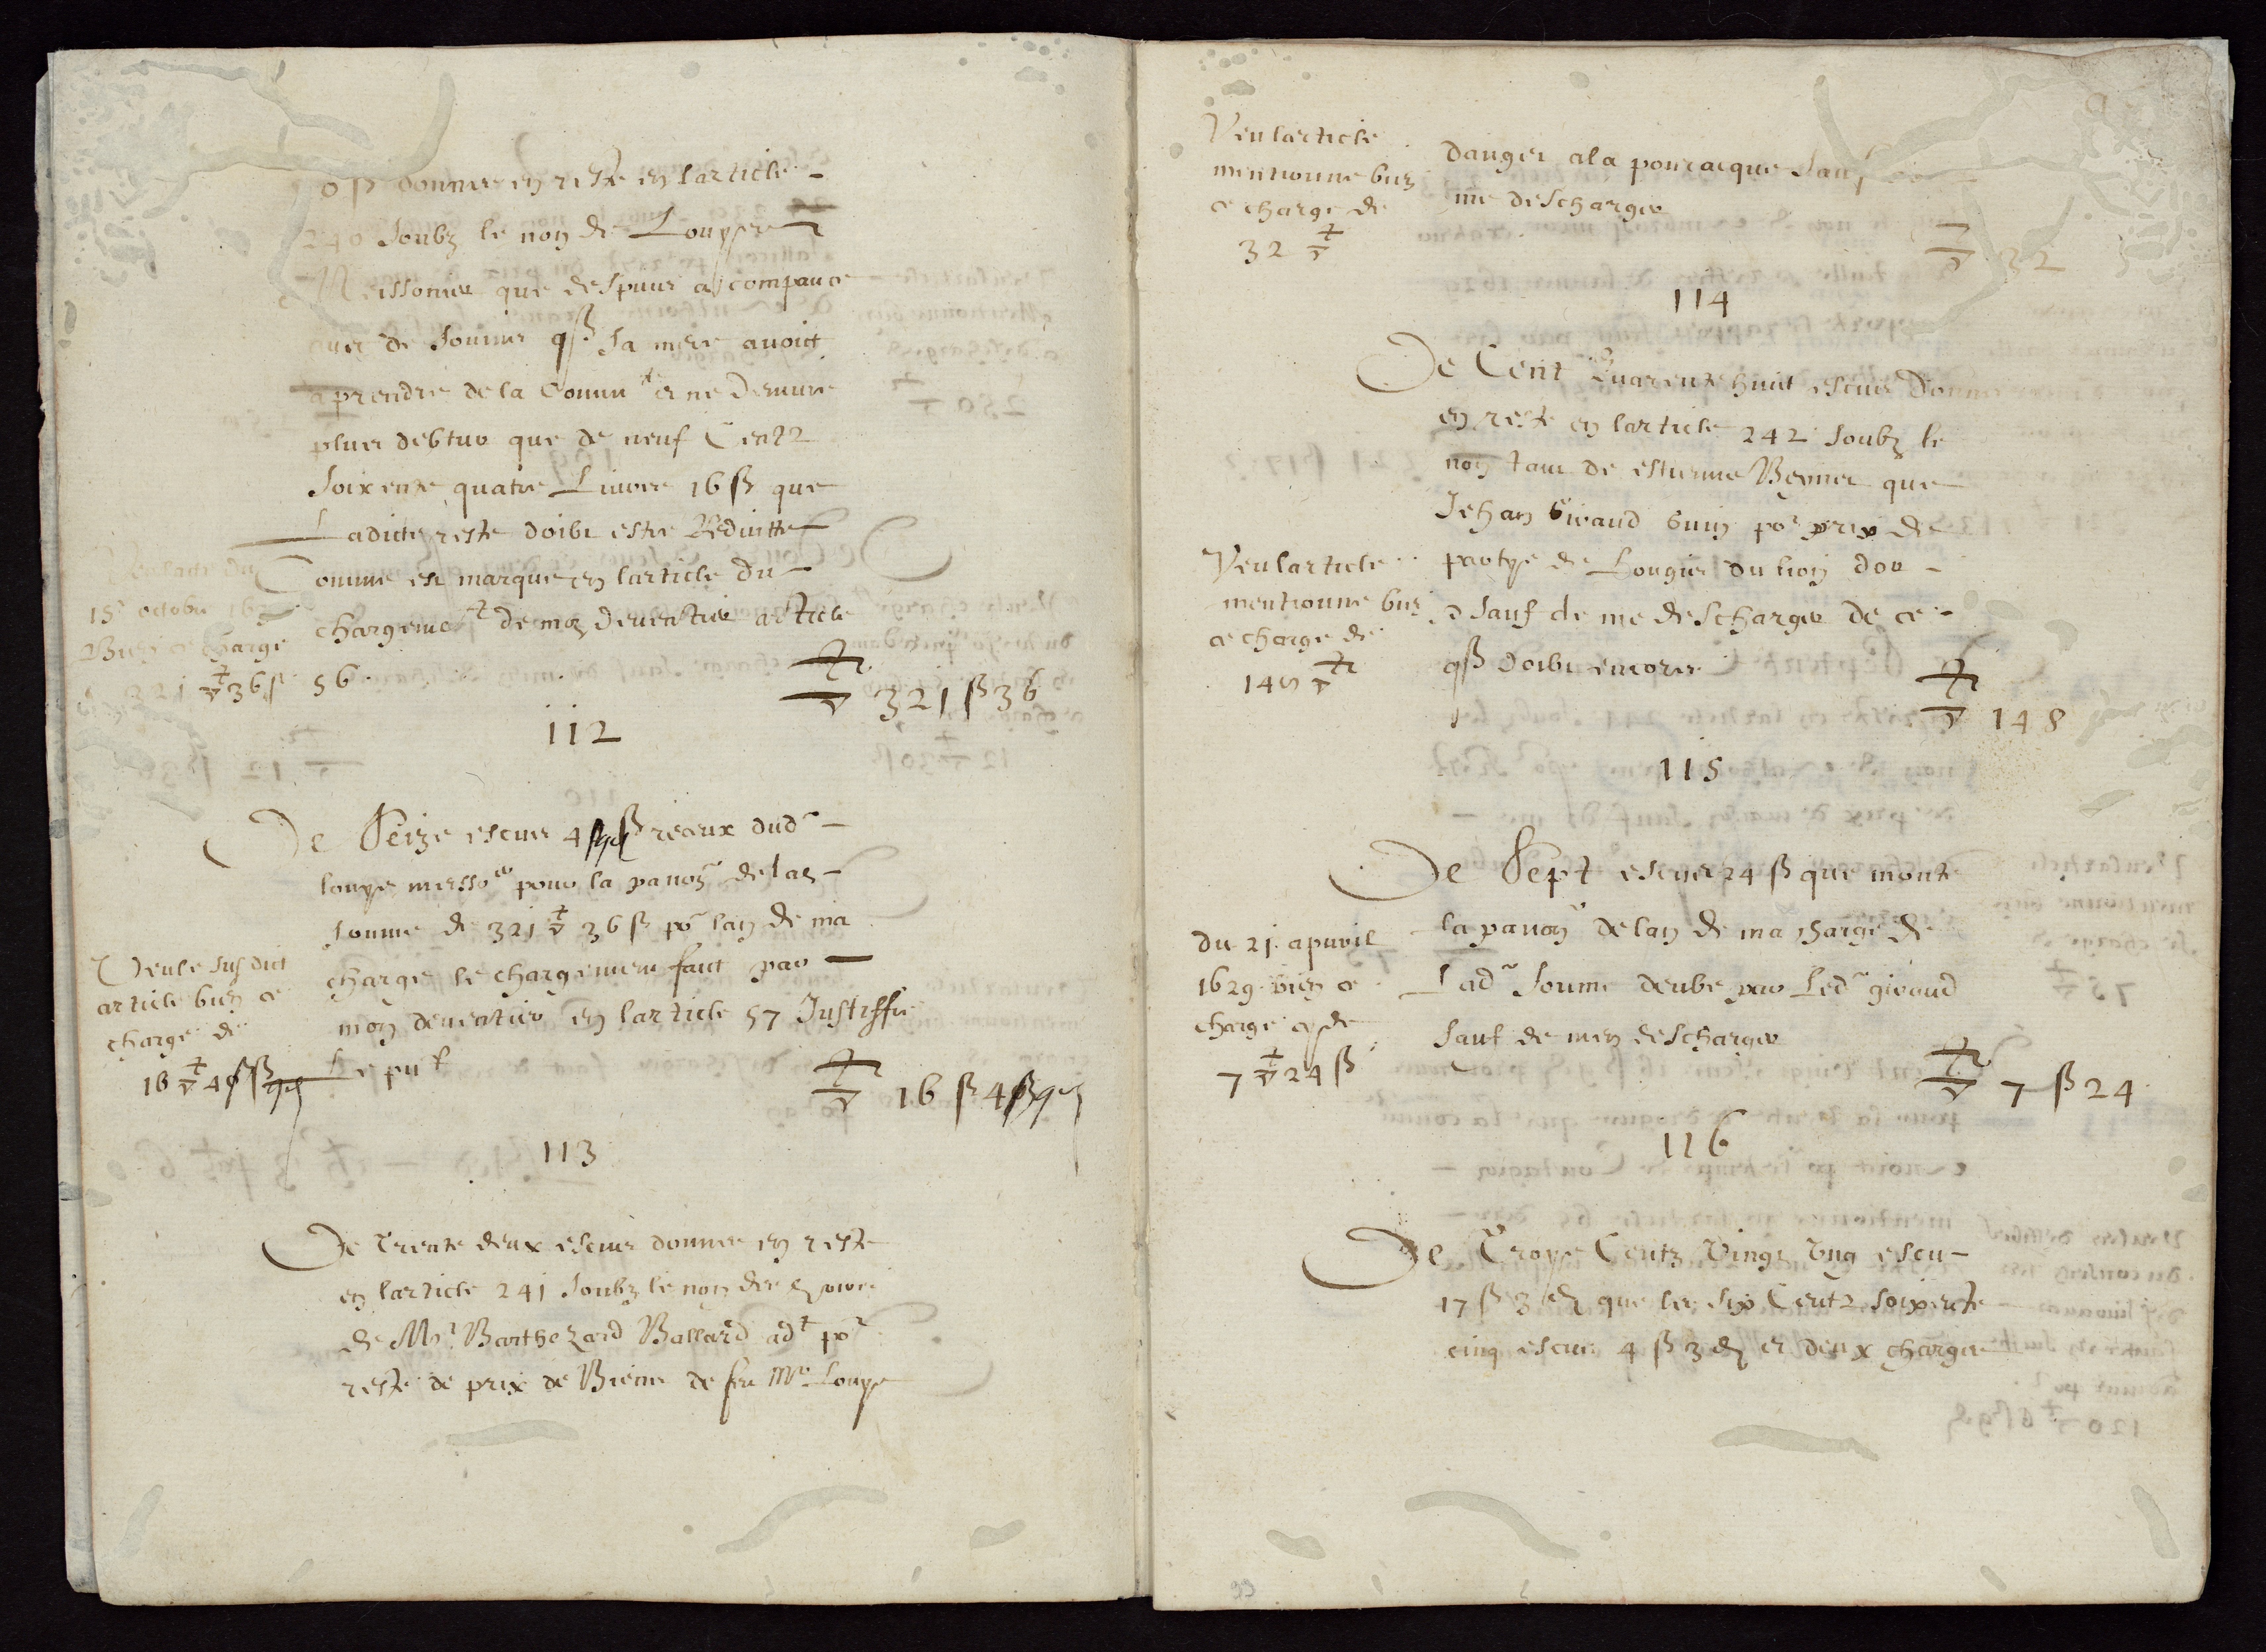 donner en reste en larticle
240 soubz le non de Louyse
Meissonier que despuis a compance
de sommes qß sa mere avoict
a prendre de la Commu^te et ne demure
plus debtur que de neuf Centz
soixente quatre Livres 16 ß que
Ladicte reste doibt estre Reduitte
Comme est marque en larticle du
chargemen^t de mon deventier article
56
321 ß 36
15e octobre
Bien ce charge
321 36 ß
112
De Seize escus 4 ß reaux dud
louyse messo^er pour la panon de lad
somme de 321 36 ß po^r lan de ma
charge le chargement faict par
mon deventier en larticle 57 Justiffie
Le put
16 ß 4 ß
Veu le susdict
article bien ce
charge de
16 4 ß
113
De Trente deux escus donnes en reste
en larticle 241 soubz le non des hoirs
de M^e Barthezard Ballard ad^t po^r
reste de prix de Biens de feu M^e Louys
Veu larticle
mentionne bien
ce charge de
32
danger a la pourcacque sauf
me descharger
32
114
De Cent Quarente huict escus Donnes
en reste en larticle 242 soubz le
non tant de estienne Beymet que
Jehan Giraud buin po^r prix de
partye de Lougis du lion dor
sauf de me descharger de ce
qß doibt encores
148
Veu larticle
mentionne bien
ce charge de
148
115
De Sept escus 24 ß que monte
la panon de lan de ma charge de
Lad somme deube par Led giraud
sauf de men descharger
7 ß 24
du 21 apvril
1629 bien ce
charge de
7 24 ß
116
De Troys Centz Vingt Ung escu
17 ß 3 d que les six Centz soixente
cinq escus 4 ß 3 d et deux charges
99